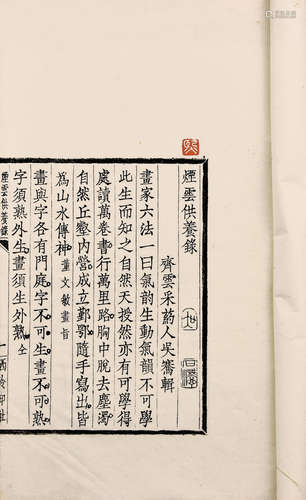 煙雲供養錄
齊雲采葯人吳騫輯
畫家六法一曰氣韵生動氣韻不可學
此生而知之自然天授然亦有可學得
處讀萬卷書行萬里路胸中脫去塵濁
自然丘壑內營成立鄞鄂隨手寫出皆
為山水傳神董文敏畫旨
畫與字各有門庭字不可生畫不可熟
字須熟外生畫須生外熟仝
煙雲供養錄
一
西泠印社